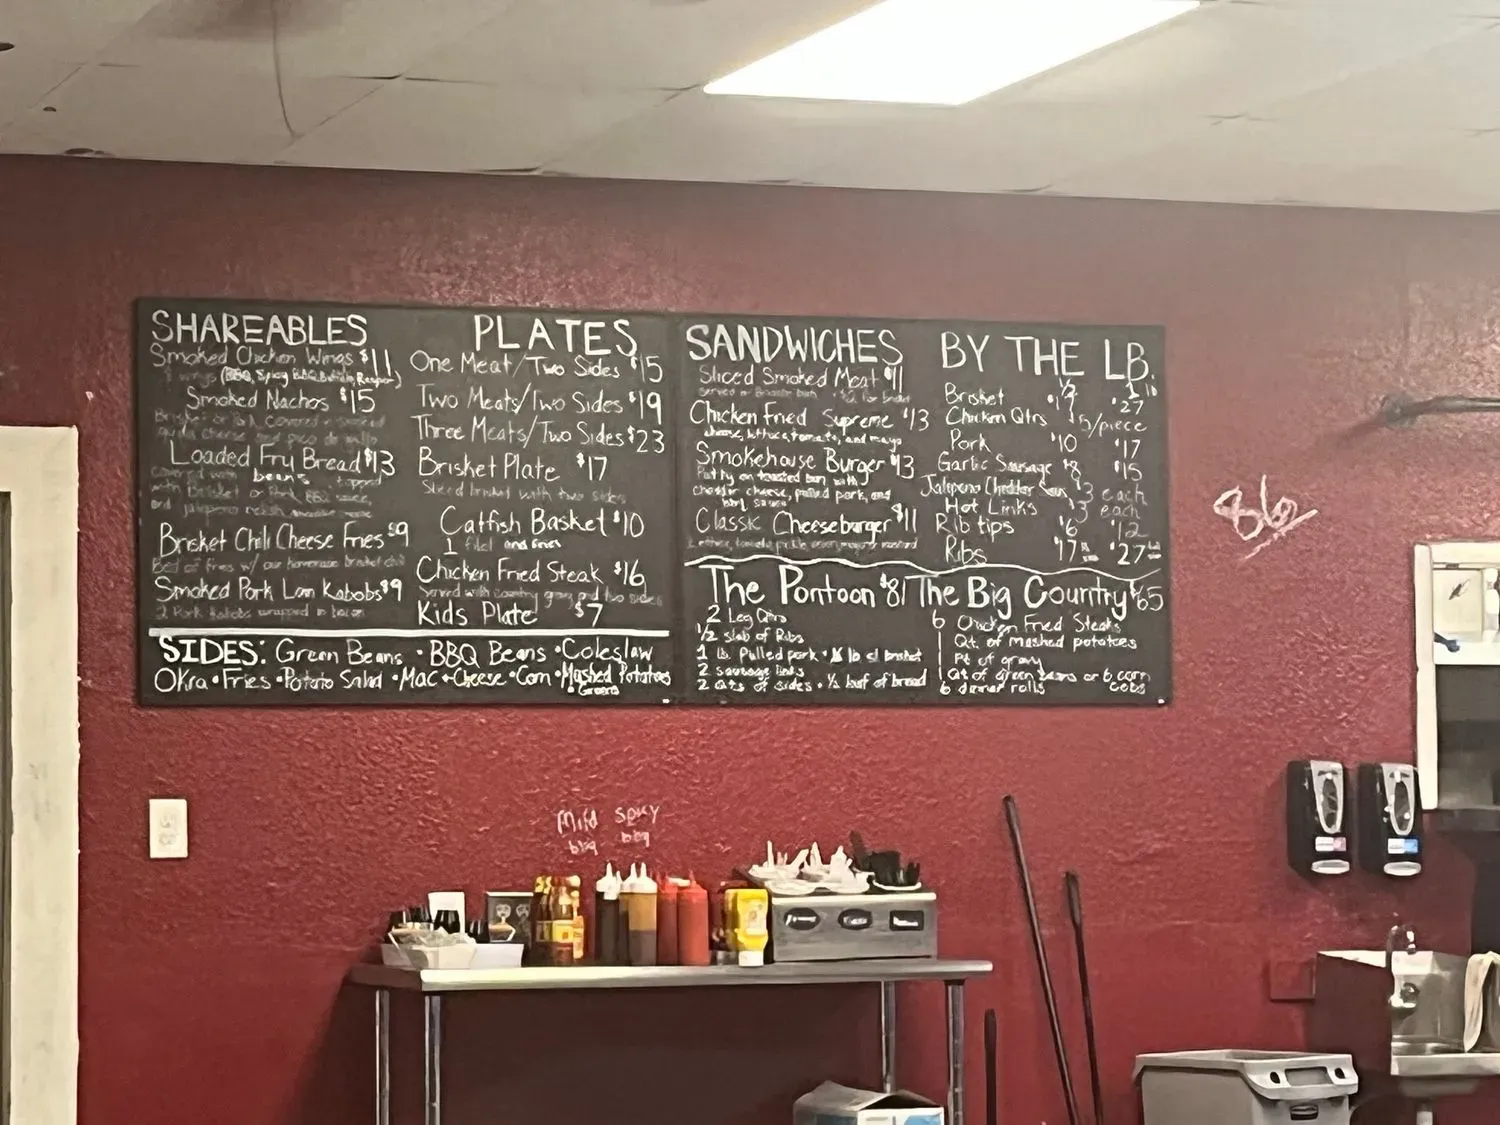 SHAREABLES
Smoked Chicken Wings $11
wings (BBQ, Spicy BBQ, Buffalo,
Smoked Nachos $15
Loaded Fry Bread $13
covered with beans topped
with Brisket or Pork, BBQ sauce,
Brisket Chili Cheese Fries $9
Bed of fries w/ our homemade brisket chili
Smoked Pork Loin Kabobs $9
2 Pork Kabobs wrapped in bacon
PLATES
One Meat/Two Sides $15
Two Meats/Two Sides $19
Three Meats/Two Sides $23
Brisket Plate $17
Sliced brisket with two sides
Catfish Basket $10
1 filet and fries
Chicken Fried Steak $16
Served with country gravy and two sides
Kids Plate $7
SIDES: Green Beans • BBQ Beans • Coleslaw
Okra • Fries • Potato Salad • Mac + Cheese • Corn • Mashed Potatoes
• Greens
SANDWICHES
Sliced Smoked Meat $11
Chicken Fried Supreme $13
cheese, lettuce, tomato, and mayo
Smokehouse Burger $13
Patty on toasted bun with
cheddar cheese, pulled pork, and
bbq sauce
Classic Cheeseburger $11
BY THE LB.
1/2 1 lb
Brisket $27
Chicken Qtrs $5/piece
Pork $10 $17
Garlic Sausage $8 $15
Jalapeno Cheddar $3 each
Hot Links $3 each
Rib tips $6 $12
Ribs $17 $27
The Pontoon $81
2 Leg Qtrs
1/2 slab of Ribs
1 lb. Pulled pork • lb of brisket
2 sausage links
2 Qts of sides • 1/2 loaf of bread
The Big Country $65
6 Chicken Fried Steaks
1 Qt. of mashed potatoes
1 Pt of gravy
1 Qt of green beans or 6 corn
cobs
6 dinner rolls
86
Mild
bbq
Spicy
bbq